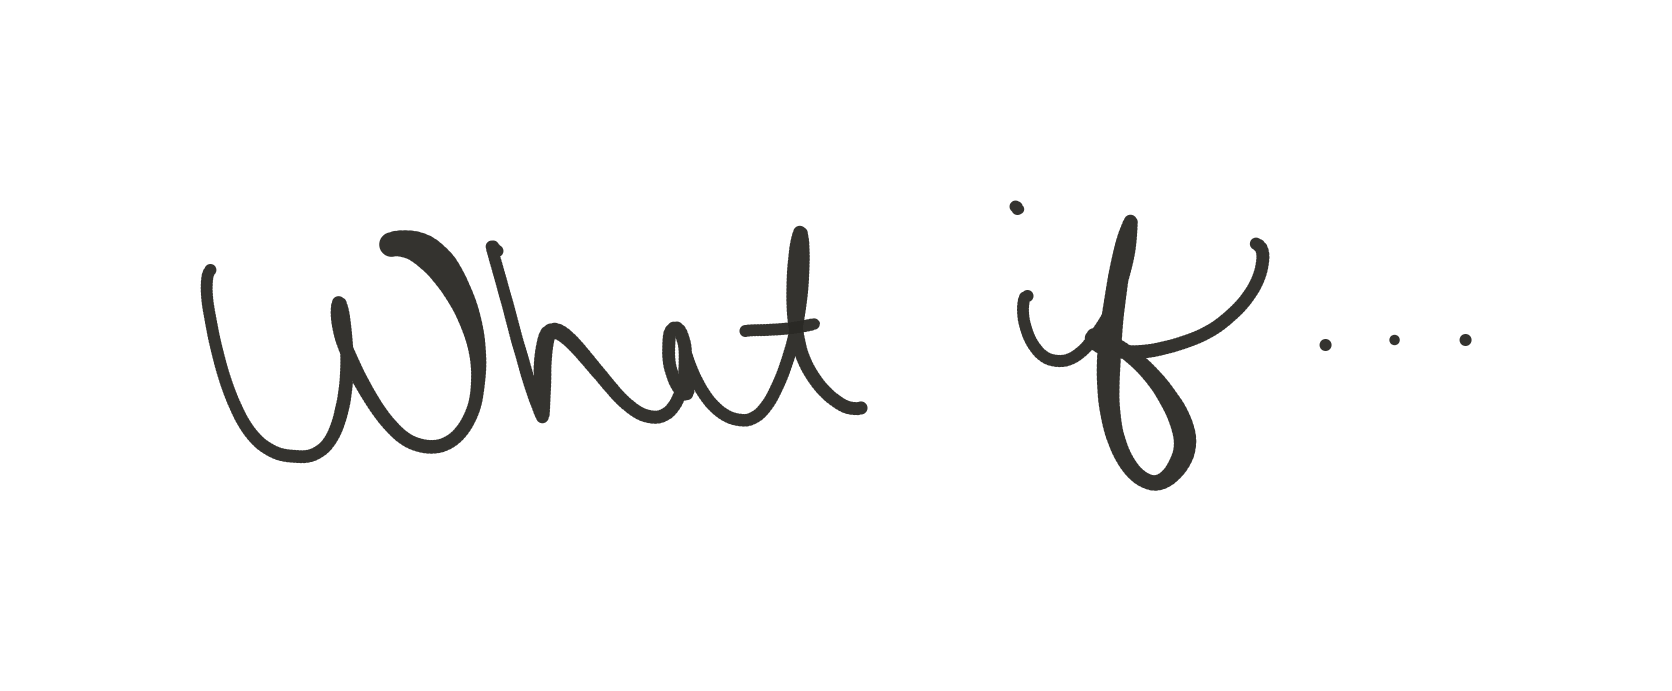 What if...